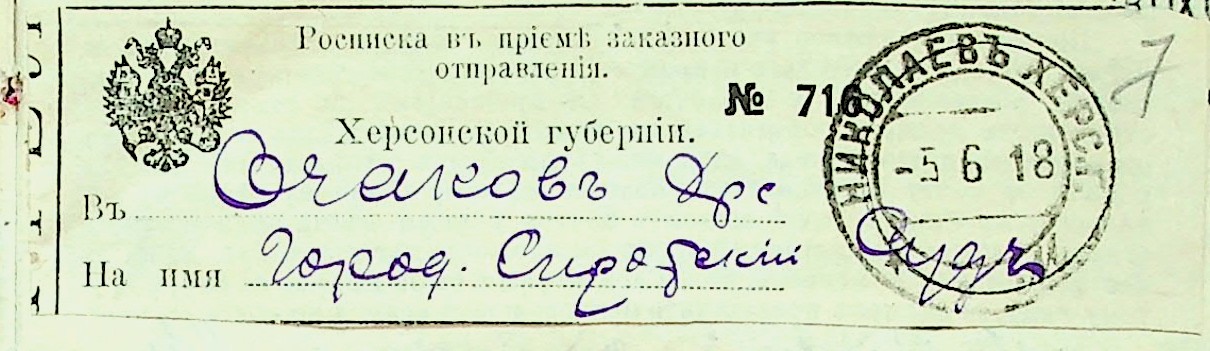 Росписка въ пріемѣ заказного
отправленія.
№ 716
Херсонской губерніи.
Въ Очаковъ Хрс
На имя Город. Сиротскій Судъ
НИКОЛАЕВЪ ХЕРС. Г.
-5 6 18
7